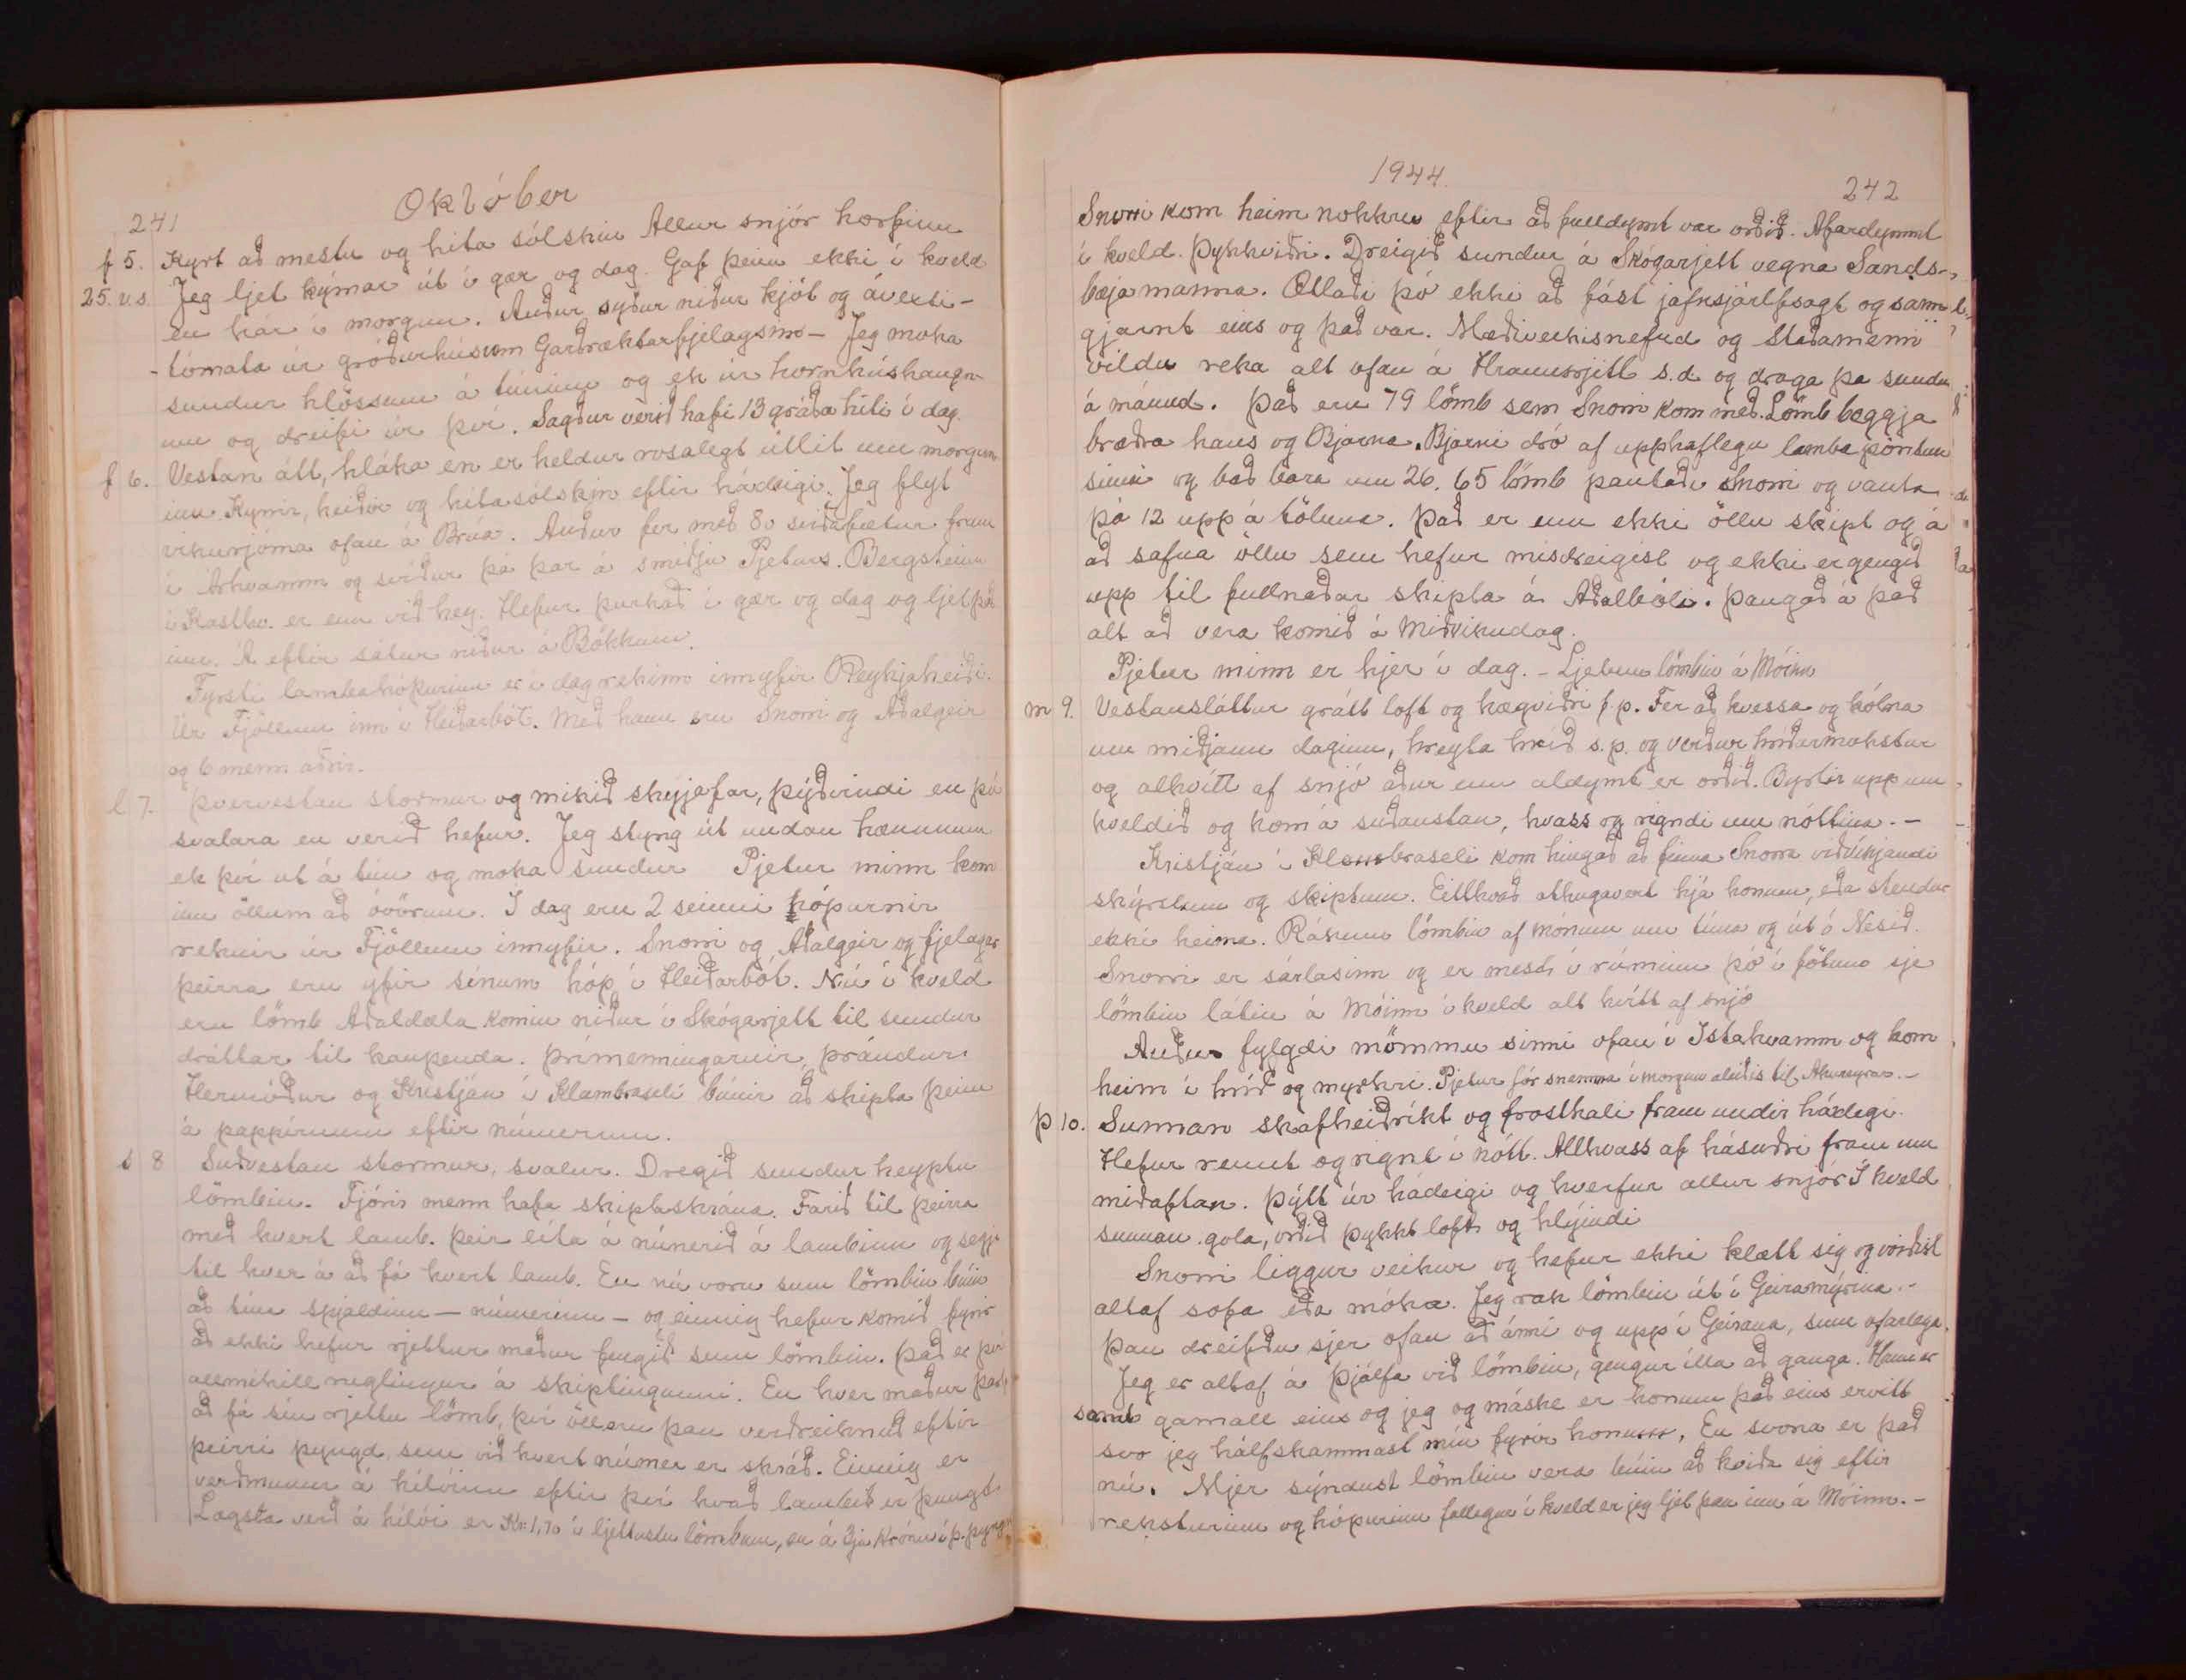 Október
241
f 5. Kyrt að mestu og hita sólskin Allur snjór horfinn
25. v.s. Jeg ljet kýrnar út í gær og dag. Gaf þeim ekki í kveld
en hár í morgun. Auður sýður niður kjöt og ávexti -
- tómata úr gróðurhúsum Garðræktarfjelagsins - Jeg moka
sundur hlössum á túninu og ek úr hornhúshaugn-
um og dreifi úr því. Sagður verið hafi 13 gráða hiti í dag.
f 6. Vestan átt, hláka en er heldur rosalegt útlit um morgun
inn. Kyrrir, heiðir og hitasólskin eftir hádeigi. Jeg flyt
vikurjóma ofan á Brúa. Auður fer með 80 sviðafætur fram
í Árhvamm og svíður þá þar á smiðju Pjeturs. Bergsteinn
í Kasthv. er enn við hey. Hefur þurkað í gær og dag og ljet þá
inn. Á eftir sátur niður á Bökkum.
Fyrsti lambahópurinn er í dag rekinn innyfir Reykjaheiði.
Úr Fjöllum inn í Heiðarbót. Með hann eru Snorri og Aðalgeir
og 6 menn aðrir.
l 7. Þvervestan stormur og mikið skýjafar, þýðvindi en þó
svalara en verið hefur. Jeg styng út undan hænunum
ek því út á tún og moka sundur Pjetur minn kom
inn öllum að óvörum. Í dag eru 2 seinni hóparnir
reknir úr Fjöllum innyfir. Snorri og Aðalgeir og fjelagar
þeirra eru yfir sínum hóp í Heiðarbót. Nú í kveld
eru lömb Aðaldæla komin niður í Skógarrjett til sundur
dráttar til kaupenda. Þrímenningarnir, Þrándur
Hermóður og Kristján í Klambraseli búnir að skipta þeim
á pappírnum eftir númerum.
s 8 Suðvestan stormur, svalur. Dregið sundur keyptu
lömbin. Fjórir menn hafa skiptaskrána. Farið til þeirra
með hvert lamb. Þeir líta á núnerið á lambinu og segja
til hver á að fá hvert lamb. En nú voru sum lömbin búin
að tína spjaldinu - númerinu - og einnig hefur komið fyrir
að ekki hefur rjettur maður fengið sum lömbin. Það er því
allmikill ruglingur á skiptingunni. En hver maður þarf
að fá sín rjettu lömb, því öll eru þau verðreiknuð eftir
þeirri þyngd, sem við hvert númer er skráð. Einnig er
verðmunur á kílóinu eftir því hvað lambið er þungt.
Lægsta verð á kílói er Kr: 1,70 í ljettustu lömbum, en á 3ju krónu í þ. þyngr
1944.
242
Snorri kom heim nokkru eftir að fulldymt var orðið. Afardymmt
í kveld. Þykkviðri. Dreigið sundur á Skógarjett vegna Sands-
bæja manna. Ætlaði þó ekki að fást jafnsjálfsagt og sann
gjarnt eins og það var. Mæðiveikisnefnd og Staðamenn
vildu reka alt ofan á Hraunsrjett s.d. og draga þa sundur
á mánud. Það eru 79 lömb sem Snorri kom með. Lömb beggja
bræðra hans og Bjarna. Bjarni dró af upphaflegu lamba pöntun
sinni og bað bara um 26. 65 lömb pantaði Snorri og vanta
þá 12 upp á töluna. Það er enn ekki öllu skipt og á
að safna öllu sem hefur misdreigist og ekki er gengið
upp til fullnaðar skipta á Aðalbóli. Þangað á það
alt að vera komið á Miðvikudag.
Pjetur minn er hjer í dag. - Ljetum lömbin á Móinn
m 9. Vestansláttur grátt loft og hægviðri f.p. Fer að hvessa og kólna
um miðjann daginn, hreyta hríð s.p. og verður hríðarmokstur
og alhvítt af snjó aður enn aldymt er orðið. Byrtir upp um
kveldið og kom á suðaustan, hvass og rigndi um nóttina. -
Kristján í Klambraseli kom hingað að finna Snorra viðvíkjandi
skýrslum og skiptum. Eitthvað athugavert hjá honum, eða stendur
ekki heima. Rákum lömbin af mónum um túna og út á Nesið.
Snorri er sárlasinn og er mest í rúminu þó í fötuno sje
lömbin látin á Móinn í kveld alt hvítt af snjó
Auður fylgdi mömmu sinni ofan í Ystahvamm og kom
heim í hríð og myrkri. Pjetur fór snemma í morgun áleiðis til Akureyrar. -
þ 10. Sunnan skafheiðríkt og frostkali fram undir hádegi.
Hefur rennt og rignt í nótt. Allhvass af hásuðri fram um
miðaftan. Þýtt úr hádeigi og hverfur allur snjór Í kveld
sunnan gola, orðið þykkt loft og hlýindi
Snorri liggur veikur og hefur ekki klætt sig og virðist
altaf sofa eða móka. Jeg rak lömbin út í Geiramýrna. -
Þau dreifðu sjer ofan að ánni og upp í Geirana, sum ofarlega.
Jeg er altaf á Þjálfa við lömbin, gengur illa að ganga. Hann er
samt gamall eins og jeg og máske er honum það eins ervitt
svo jeg hálfskammast mín fyrir honum. En svona er það
nú. Mjer sýndust lömbin vera búin að kviða sig eftir
reksturinn og hópurinn fallegur í kveld er jeg ljet þau inn á Móinn. -